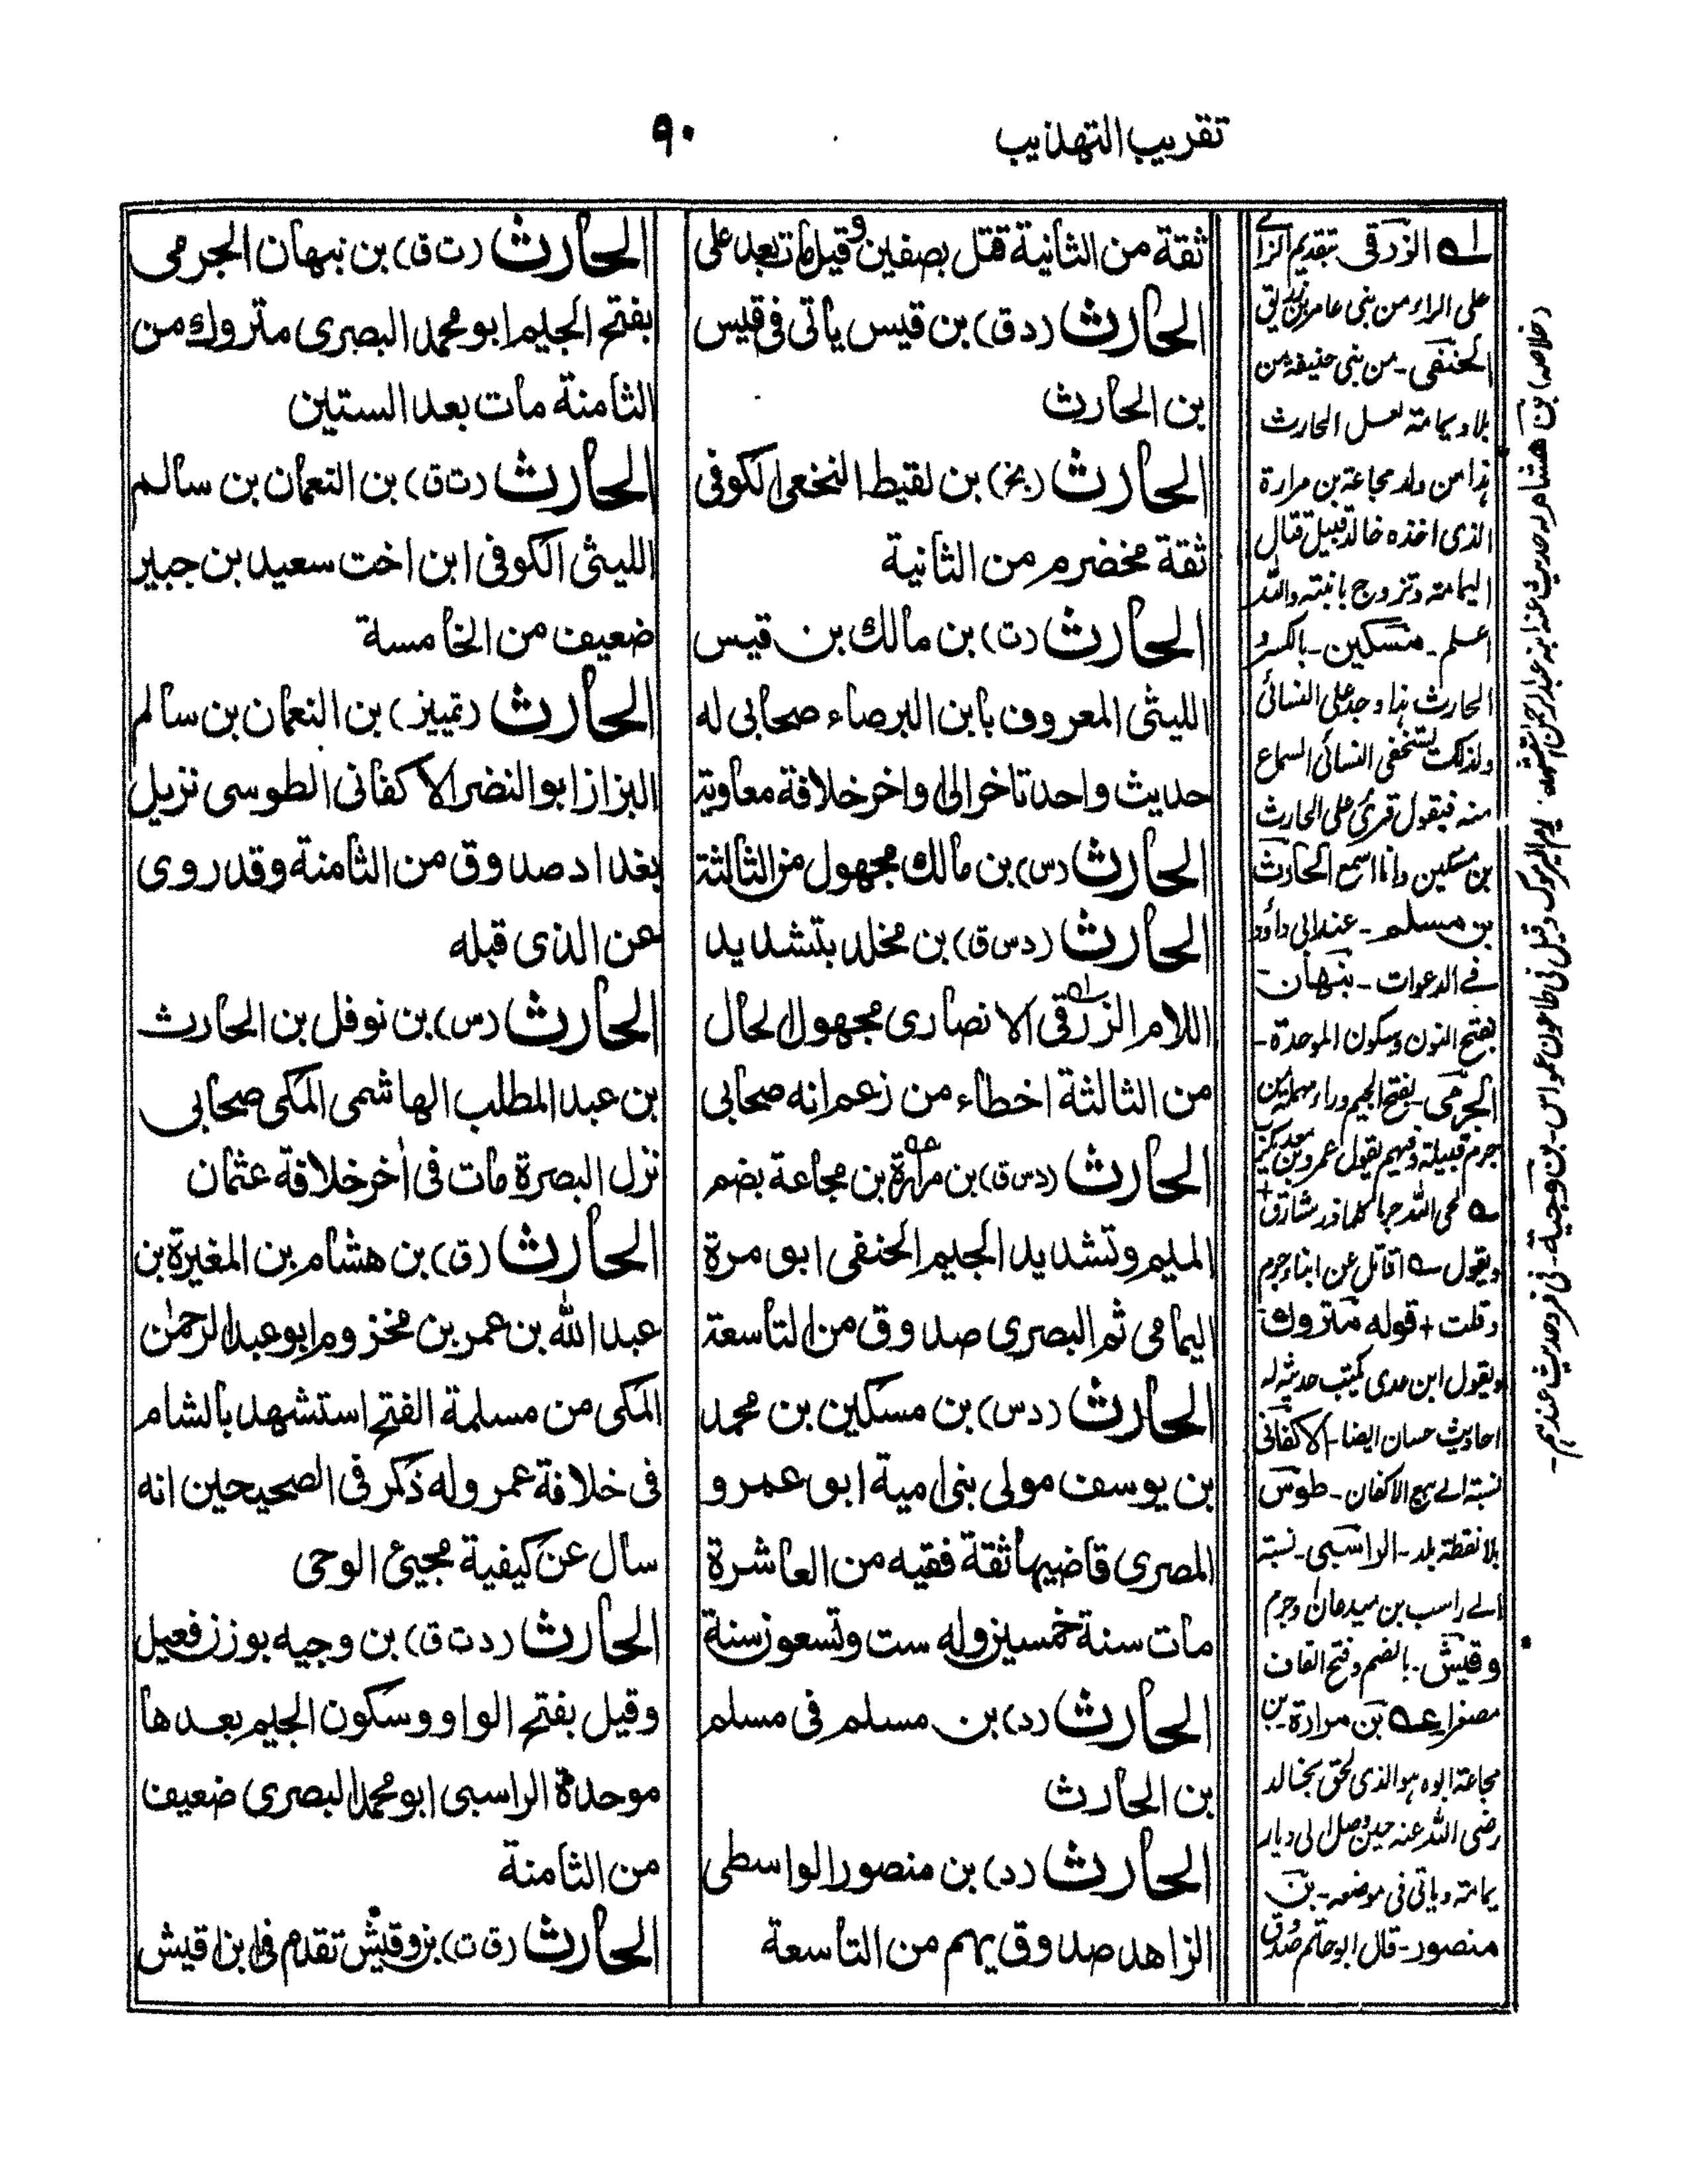 تقريب التهذيب
٩٠
ثقة من الثانية قتل بصفين وقيل مات بعد علی
الحارث (د ق) بن قيس ياتی فی قيس
بن الحارث
الحارث (بخ) بن لقيط النخعی الكوفی
ثقة مخضرم من الثانية
الحارث (ت) بن مالك بن قيس
الليثی المعروف بابن البرصاء صحابی له
حديث واحد تاخر الی اواخر خلافة معاوية
الحارث (س) بن مالك مجهول من الثالثة
الحارث (د س ق) بن مخلد بتشديد
اللام الزرقی الانصاری مجهول الحال
من الثالثة اخطاء من زعم انه صحابی
الحارث (د س ق) بن مرارة بن مجاعة بضم
الميم وتشديد الجيم الحنفی ابو مرة
اليمامی ثم البصری صدوق من التاسعة
الحارث (د س) بن مسكين بن محمد
بن يوسف مولی بنی امية ابو عمرو
المصری قاضيها ثقة فقيه من العاشرة
مات سنة خمسين وله ست وتسعون سنة
الحارث (د) بن مسلم فی مسلم
بن الحارث
الحارث (د) بن منصور الواسطی
الزاهد صدوق يهم من التاسعة
الحارث (ت ق) بن نبهان الجرمی
بفتح الجيم ابو محمد البصری متروك من
الثامنة مات بعد الستين
الحارث (ت ق) بن النعمان بن سالم
الليثی الكوفی ابن اخت سعيد بن جبير
ضعيف من الخامسة
الحارث (تمييز) بن النعمان بن سالم
البزاز ابو النضر الاكفانی الطوسی نزيل
بغداد صدوق من الثامنة وقد روی
عن الذی قبله
الحارث (س) بن نوفل بن الحارث
بن عبد المطلب الهاشمی المكی صحابی
نزل البصرة مات فی اٰخر خلافة عثمان
الحارث (ق) بن هشام بن المغيرة بن
عبد الله بن عمر بن مخزوم ابو عبد الرحمٰن
المكی من مسلمة الفتح استشهد بالشام
فی خلافة عمر وله ذكر فی الصحيحين انه
سال عن كيفية مجيئ الوحی
الحارث (د ت ق) بن وجيه بوزن فعيل
وقيل بفتح الواو وسكون الجيم بعدها
موحدة الراسبی ابو محمد البصری ضعيف
من الثامنة
الحارث (ق ت) بن وقيش تقدم فی ابن اقيش
له الزرقی بتقديم الزاے
علی الراء من بنی عامر بن زريق
الحنفی - من بنی حنيفة من
بلاد يمامة لعل الحارث
هذا من ولد مجاعة بن مرارة
الذی اخذه خالد قبيل قتال
اليمامة وتزوج بابنته والله
اعلم - مسكين - بالكسر و
الحارث هذا وجد علی النسائی
ولذلك يستخفی النسائی السماع
منه فيقول قرئ علی الحارث
بن مسكين وانا اسمع الحارث
بن مسلم - عند ابی داؤد
فے الدعوات - نبهان
بفتح النون وسكون الموحدة -
الجرمی - بفتح الجيم وراء مهملة من
جرم قبيلة وفيهم يقول عمرو بن معديكرب
لحی الله جرما كلما ذر شارق +
ويقول اقاتل عن ابناء جرم
وقلت + قوله متروك
ويقول ابن عدی يكتب حديثه له
احاديث حسان ايضا - الاكفانی
نسبة الے بيع الاكفان - طوس
بلا نقطة بلد - الراسبی - نسبة
الے راسب بن ميدعان وجرم
وقيش - بالضم وفتح القاف
مصغرا عه بن مرارة بن
مجاعة ابوه هو الذی لحق بخالد
رضی الله عنه حين وصل الی ديار
يمامة وياتی فی موضعه - بن
منصور - قال ابو حاتم صدوق
(خلاصه) بن هشام له حديث عنه ابنه عبد الرحمن استشهد يوم اليرموك وقيل فی طاعون عمواس - بن وجيه - فی فرد حديث عندهم -